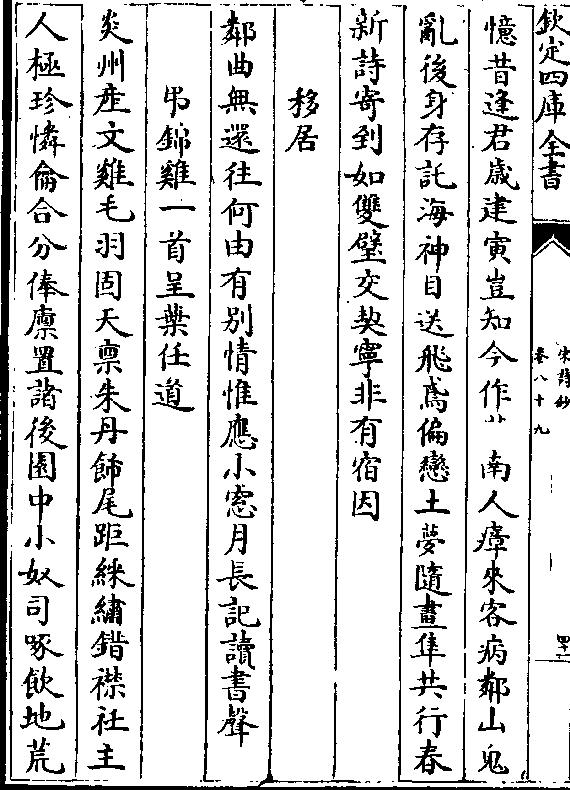 欽定四庫全書
宋詩鈔
卷八十九
憶昔逢君歲建寅豈知今作卄南人瘴來客病鄰山鬼
亂後身存託海神目送飛鳶偏戀土夢隨畫隼共行春
新詩寄到如雙璧交契寧非有宿因
移居
鄰曲無還往何由有別情惟應小窻月長記讀書聲
弔錦雞一首呈葉任道
炎州産文雞毛羽固天禀朱丹飾尾距綵繡錯襟衽主
人極珍憐龠合分俸廪置諸後園中小奴司啄飲地荒